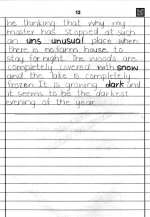 12
be thinking that why my
master has stopped at such
an uns unusual place where
there is no farm house to
stay for night. The woods are
completely covered with snow
and the lake is completely
frozen. It is growing dark and
it seems to be the darkest
evening of the year.